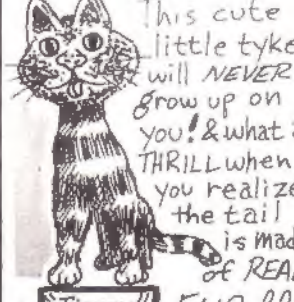 This cute
little tyke
will NEVER
grow up on
you! & what
THRILL when
you realize
the tail
is mad
of REA